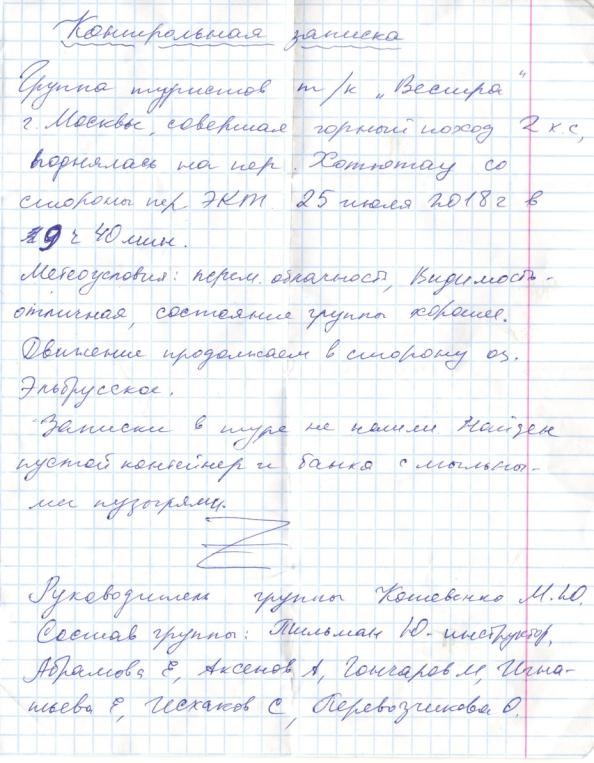 Контрольная записка
Группа туристов т/к „Вестра"
г. Москвы, совершая горный поход 2 к.с,
поднялась на пер. Хотютау со
стороны пер ЭКТ 25 июля 2018г в
9 ч 40 мин.
Метеоусловия: перем. облачность, Видимость -
отличная, состояние группы хорошее.
Движение продолжаем в сторону оз.
Эльбрусское.
Записки в туре не нашли Найден
пустой контейнер и банка с мыльны-
ми пузырями.
Руководитель группы Кошевенко М.Ю.
Состав группы: Тильман Ю - инструктор,
Абрамова Е, Аксенов А, Гончаров М, Игна-
тьева Е, Исхаков С, Перевозчикова О.